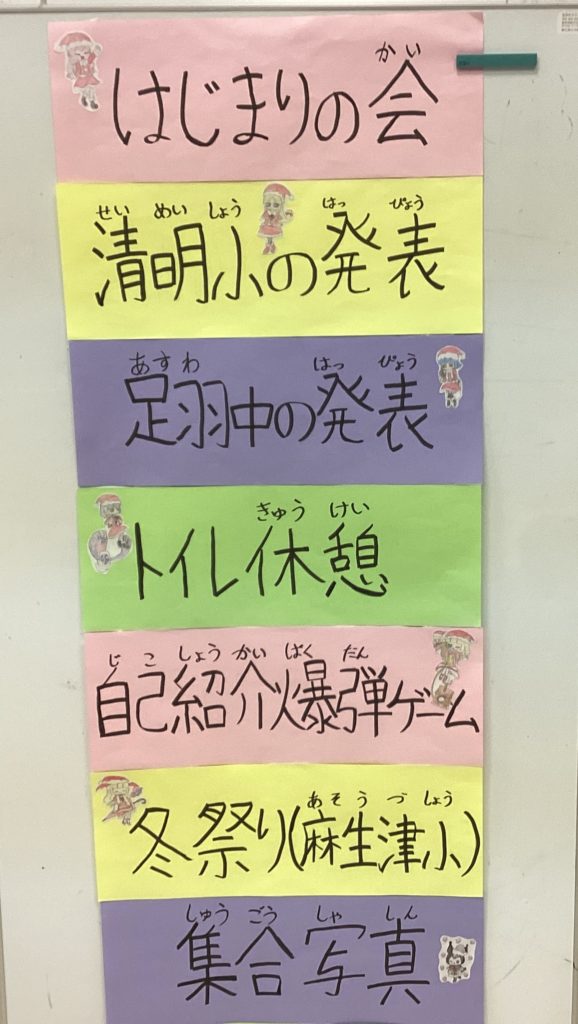 かい
はじまりの会
せい めい しょう はっ ぴょう
清明小の発表
あすわ はっ ぴょう
足羽中の発表
きゅう けい
トイレ休憩
じ こ しょう かい ばく だん
自己紹介爆弾ゲーム
あそうづ しょう
冬祭り(麻生津小)
しゅう ごう しゃ しん
集合写真